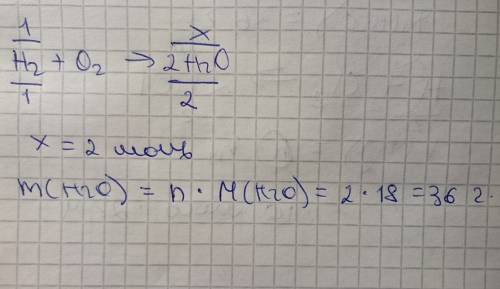 1 x
H₂ + O₂ → 2H₂O
1 2
x = 2 моль
m(H₂O) = n · M(H₂O) = 2 · 18 = 36 г.